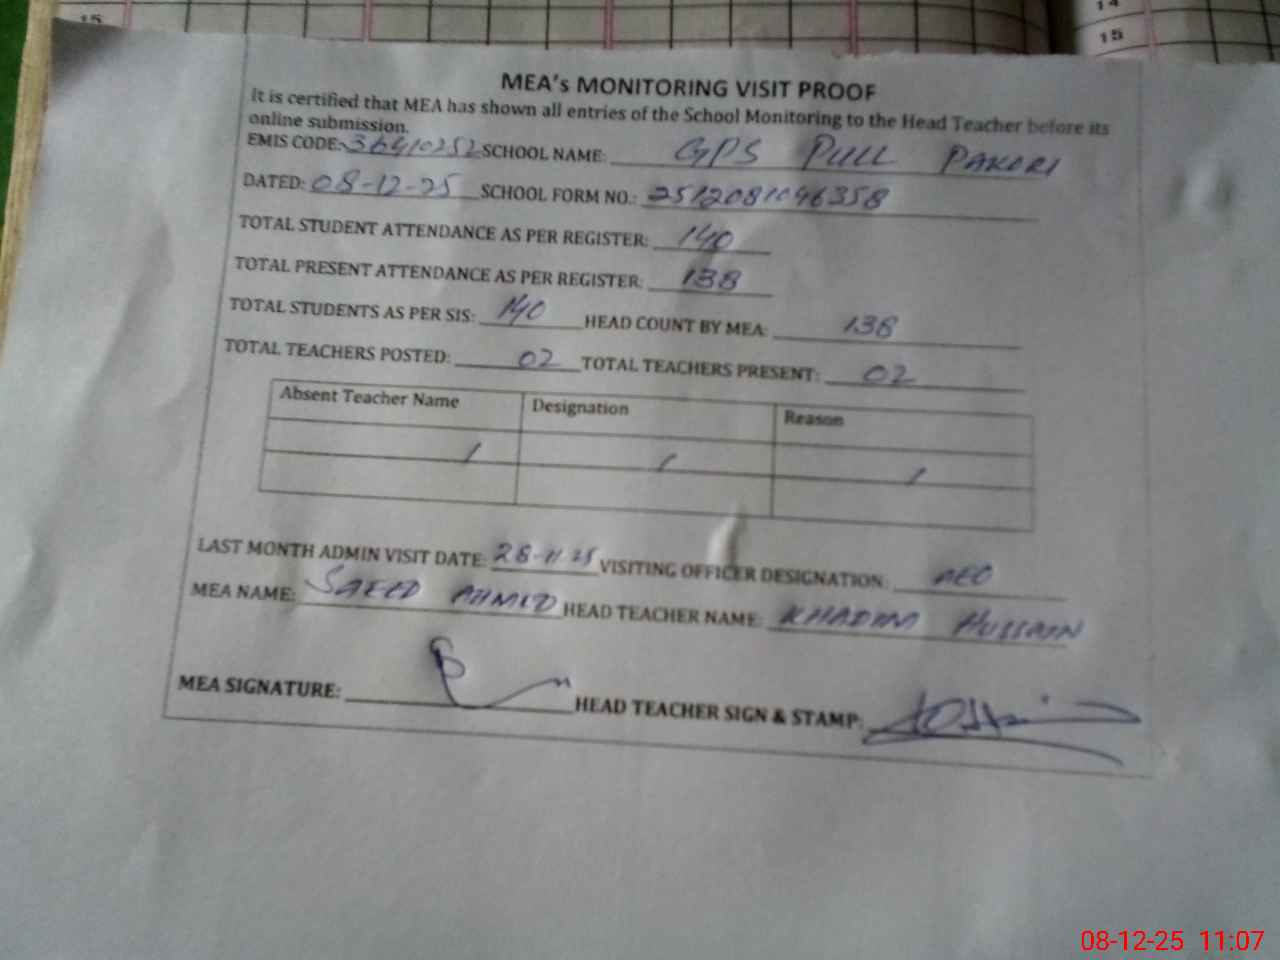 15
14
15
MEA's MONITORING VISIT PROOF
It is certified that MEA has shown all entries of the School Monitoring to the Head Teacher before its
online submission.
EMIS CODE: 36410252 SCHOOL NAME: GPS PULL PAKORI
DATED: 08-12-25 SCHOOL FORM NO.: 2512081096358
TOTAL STUDENT ATTENDANCE AS PER REGISTER: 140
TOTAL PRESENT ATTENDANCE AS PER REGISTER: 138
TOTAL STUDENTS AS PER SIS: 140 HEAD COUNT BY MEA: 138
TOTAL TEACHERS POSTED: 02 TOTAL TEACHERS PRESENT: 02
Absent Teacher Name Designation Reason
/ / /
LAST MONTH ADMIN VISIT DATE: 28-11-25 VISITING OFFICER DESIGNATION: AEO
MEA NAME: SAEED AHMED HEAD TEACHER NAME: KHADIM HUSSAIN
MEA SIGNATURE: HEAD TEACHER SIGN & STAMP:
08-12-25 11:07